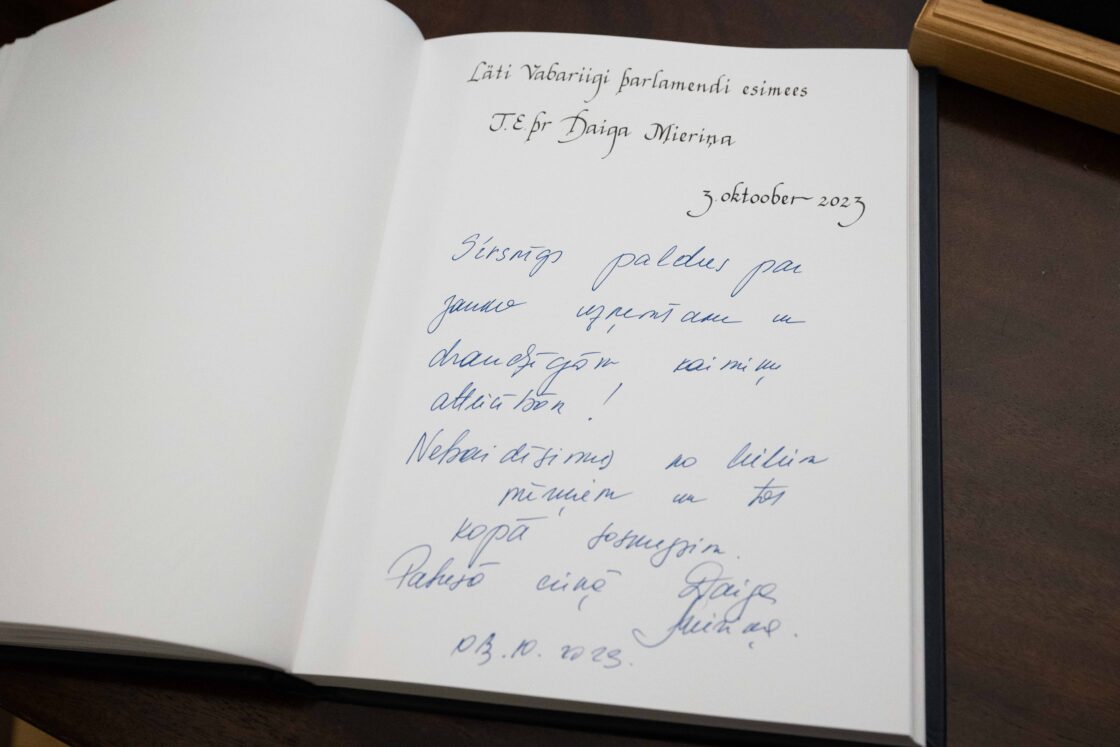 Läti Vabariigi parlamendi esimees
T.E. pr Daiga Mieriņa
3. oktoober 2023
Sirsnīgs paldies par
jauko uzņemšanu un
draudzīgām kaimiņu
attiecībām!
Nebaidīsimies no lieliem
mērķiem un tos
kopā sasniegsim.
Patiesā cieņā Daiga
Mieriņa.
03.10.2023.